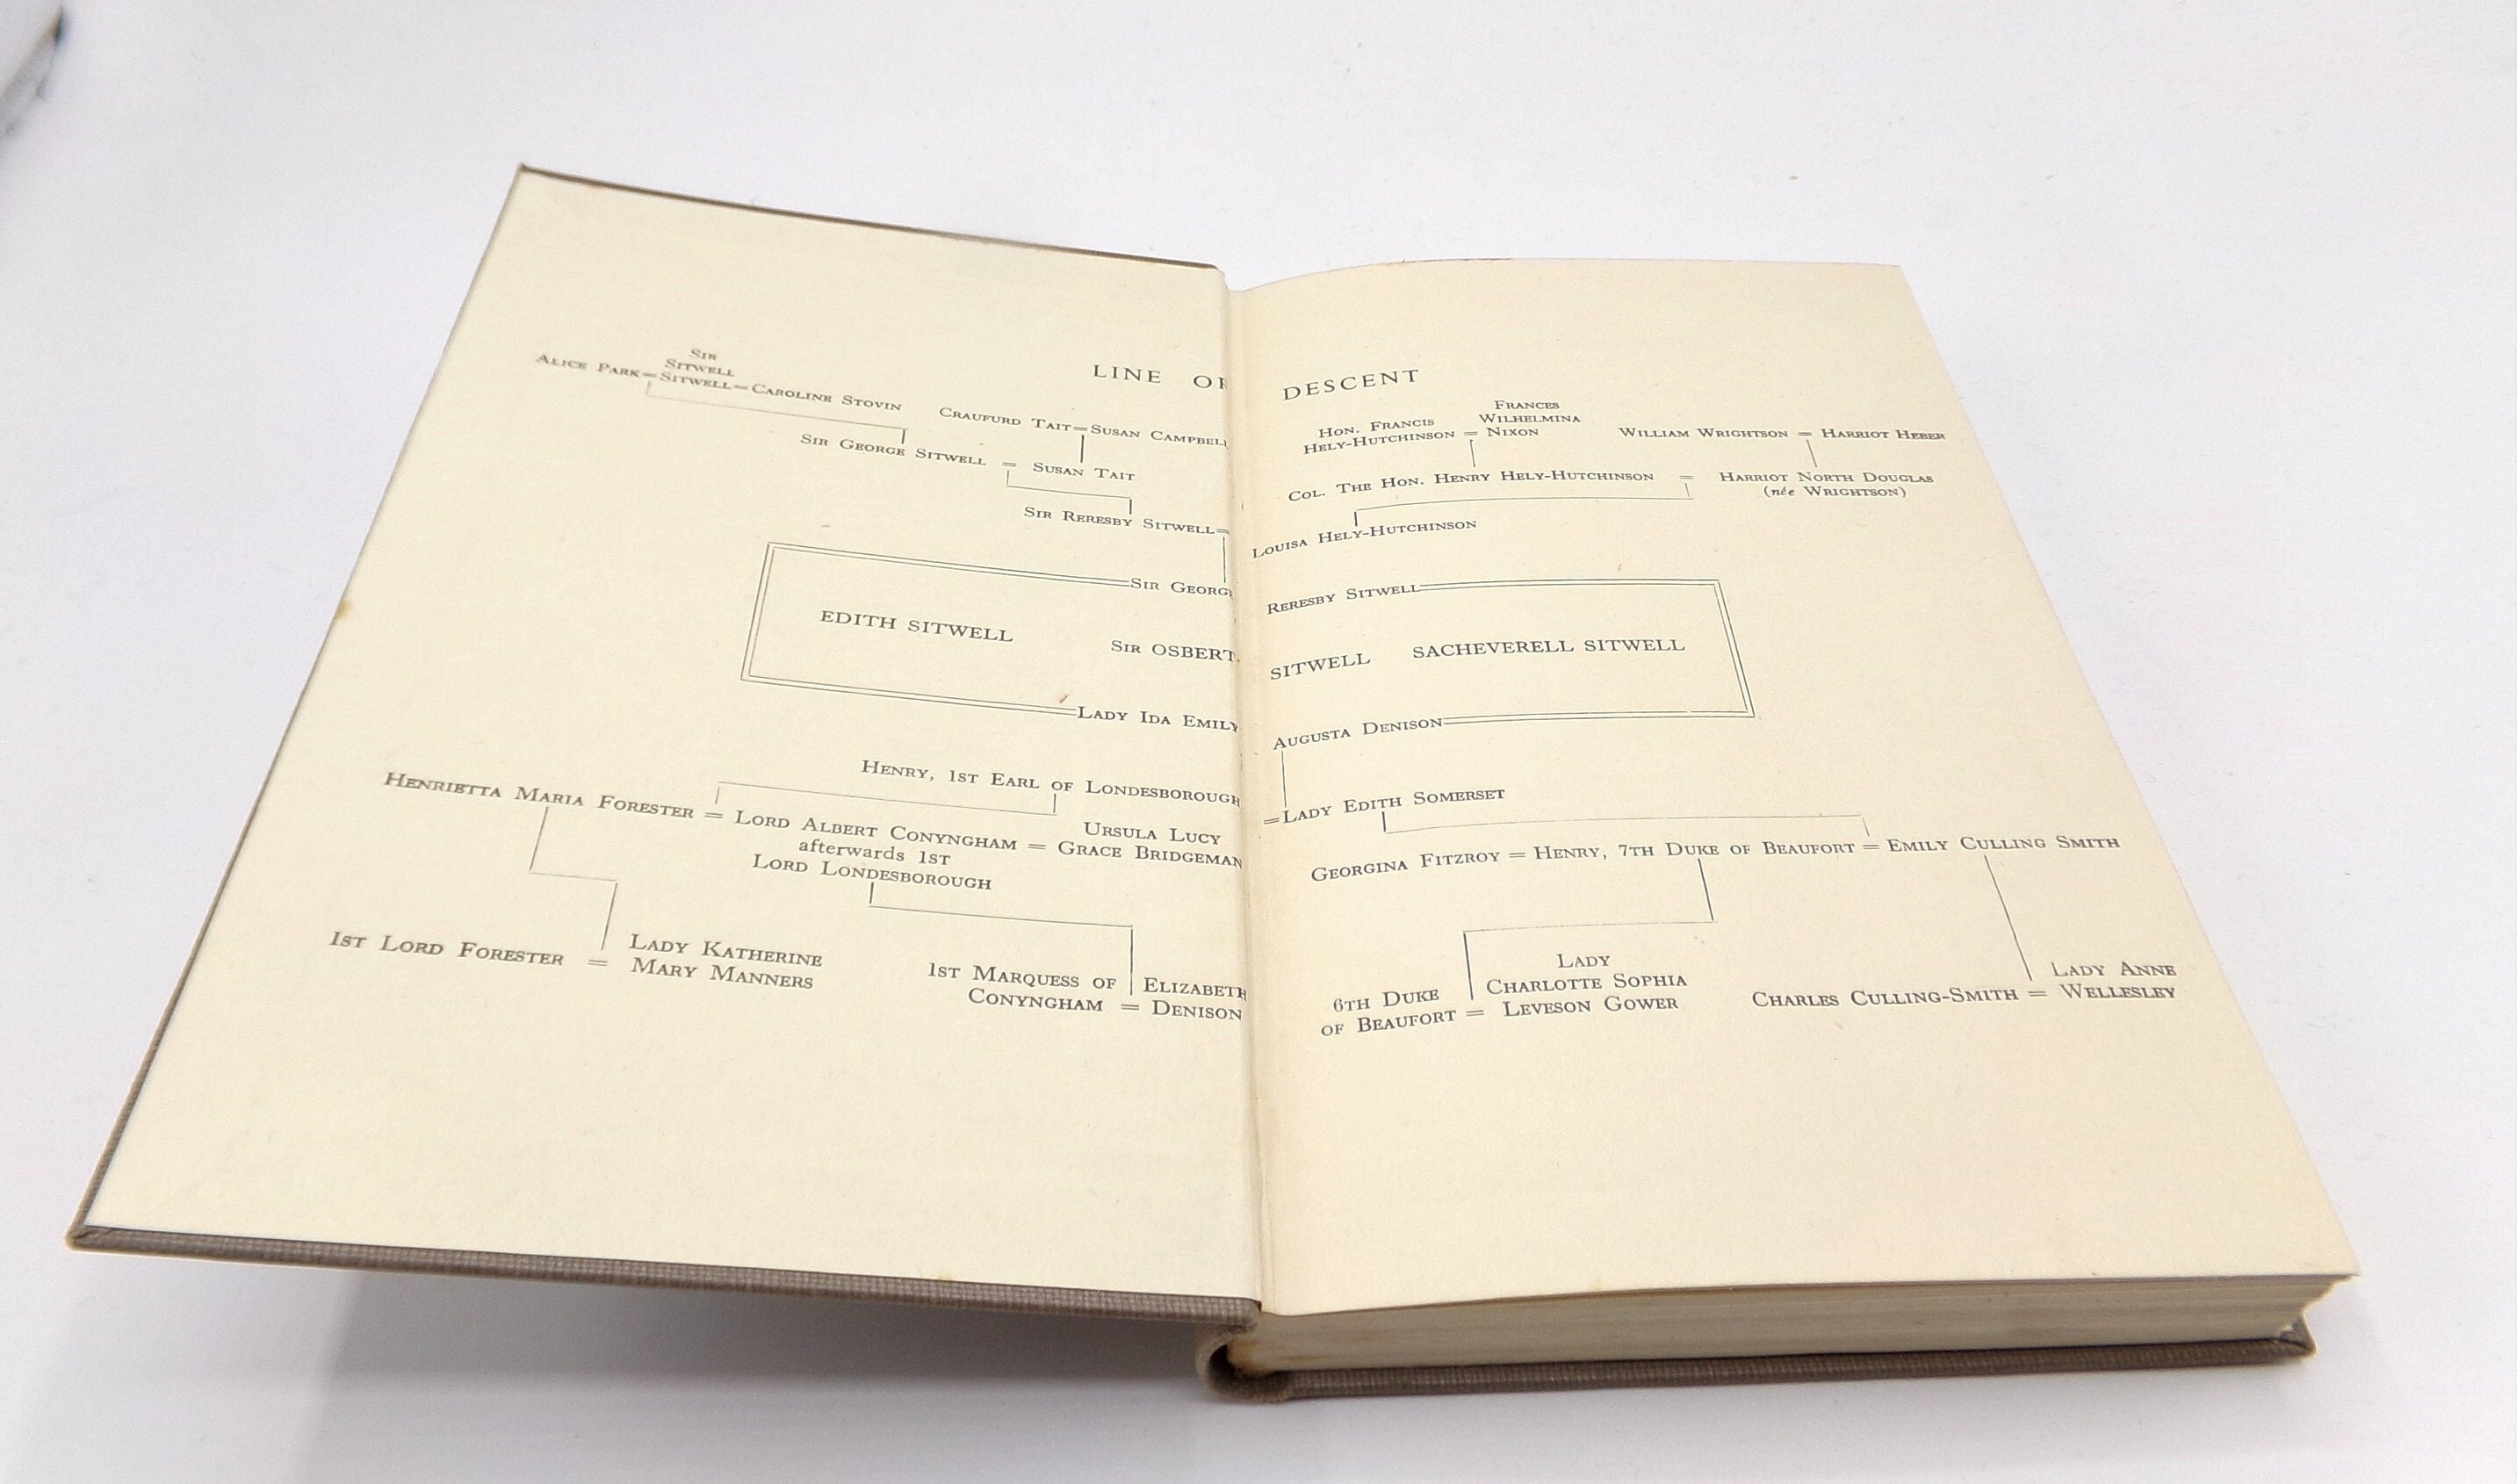 LINE OF DESCENT
SIR
SITWELL
ALICE PARK = SITWELL = CAROLINE STOVIN
CRAUFURD TAIT = SUSAN CAMPBELL
HON. FRANCIS
HELY-HUTCHINSON =
FRANCES
WILHELMINA
NIXON
WILLIAM WRIGHTSON = HARRIOT HEBER
SIR GEORGE SITWELL = SUSAN TAIT
COL. THE HON. HENRY HELY-HUTCHINSON = HARRIOT NORTH DOUGLAS
(née WRIGHTSON)
SIR RERESBY SITWELL = LOUISA HELY-HUTCHINSON
SIR GEORGE RERESBY SITWELL
EDITH SITWELL SIR OSBERT SITWELL SACHEVERELL SITWELL
LADY IDA EMILY AUGUSTA DENISON
HENRY, 1ST EARL OF LONDESBOROUGH = LADY EDITH SOMERSET
HENRIETTA MARIA FORESTER = LORD ALBERT CONYNGHAM =
afterwards 1ST
LORD LONDESBOROUGH
URSULA LUCY
GRACE BRIDGEMAN
GEORGINA FITZROY = HENRY, 7TH DUKE OF BEAUFORT = EMILY CULLING SMITH
1ST LORD FORESTER =
LADY KATHERINE
MARY MANNERS
1ST MARQUESS OF
CONYNGHAM =
ELIZABETH
DENISON
6TH DUKE
OF BEAUFORT =
LADY
CHARLOTTE SOPHIA
LEVESON GOWER
CHARLES CULLING-SMITH =
LADY ANNE
WELLESLEY